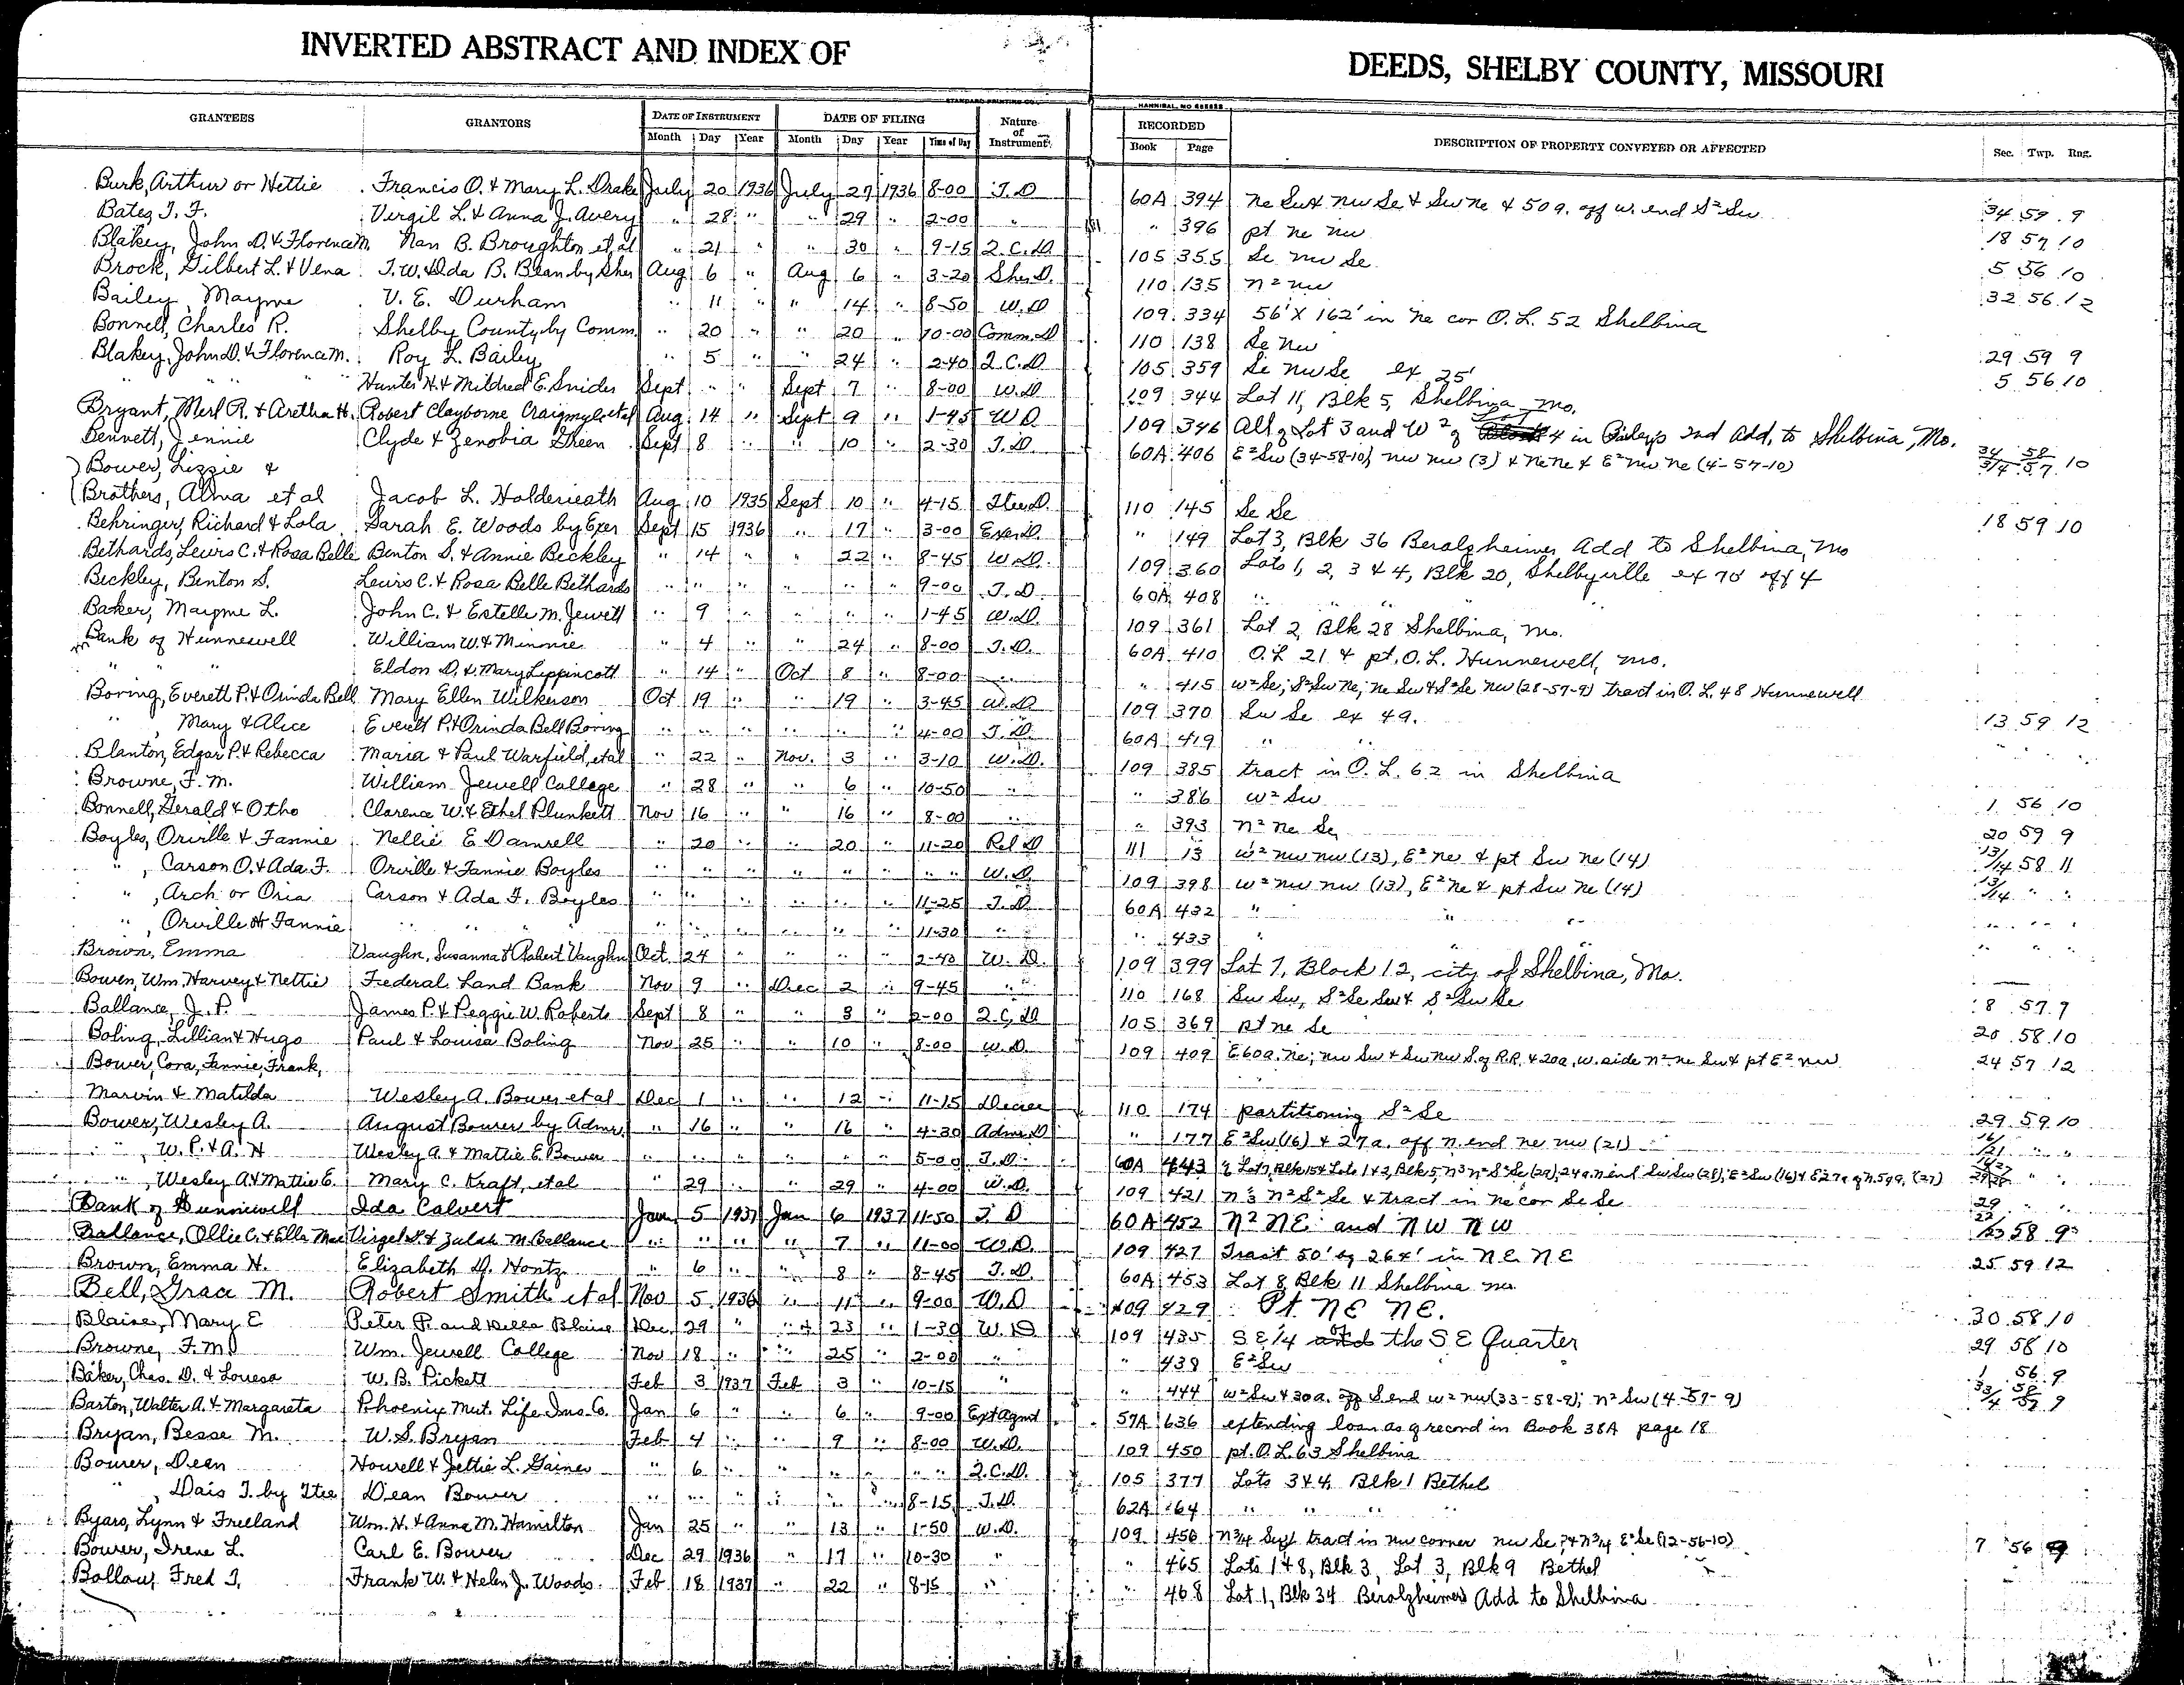 INVERTED ABSTRACT AND INDEX OF DEEDS, SHELBY COUNTY, MISSOURI
STANDARD PRINTING CO. HANNIBAL, MO
GRANTEES GRANTORS DATE OF INSTRUMENT DATE OF FILING Nature of Instrument RECORDED DESCRIPTION OF PROPERTY CONVEYED OR AFFECTED Sec. Twp. Rng.
Month Day Year Month Day Year Time of Day Book Page
Burk, Arthur or Nettie Francis O. & Mary L. Drake July 20 1936 July 27 1936 8-00 T.D 60A 394 Ne Sw & Nw Se & Sw Ne & 50a. off w. end S² Sw 34 59 9
Bates T. F. Virgil L. & Anna J. Avery " 28 " " 29 " 2-00 " " 396 pt ne nw 18 57 10
Blakey, John D. & Florence M. Nan B. Broughton et al " 21 " " 30 " 9-15 Q.C.D. 105 355 Se nw Se 5 56 10
Brock, Gilbert L. & Vena T. W. & Ida B. Bean by Sher Aug 6 " Aug 6 " 3-20 Sher D. 110 135 N² nw 32 56 12
Bailey, Mayme V. E. Durham " 11 " " 14 " 8-50 W.D 109 334 56' X 162' in ne cor O.L. 52 Shelbina
Bonnell, Charles R. Shelby County by Comm. " 20 " " 20 " 10-00 Comm.D 110 138 Se Nw 29 59 9
Blakey, John D. & Florence M. Roy L. Bailey " 5 " " 24 " 2-40 Q.C.D. 105 359 Se nw Se ex 25' 5 56 10
" " " Hunter H. & Mildred E. Snider Sept " " Sept 7 " 8-00 W.D 109 344 Lot 11, Blk 5, Shelbina Mo.
Bryant, Merl R. & Aretha H. Robert Clayborne Craigmyle et al Aug 14 " Sept 9 " 1-45 WD 109 346 All of Lot 3 and W² of Lot 4 in Bailey's 2nd Add. to Shelbina, Mo.
Bennett, Jennie Clyde & Zenobia Green Sept 8 " " 10 " 2-30 T.D. 60A 406 E² Sw (34-58-10) nw nw (3) & Ne Ne & E² nw ne (4-57-10) 34 3/4 58 57 10
Bower, Lizzie &
Brothers, Alma et al Jacob L. Holderieath Aug 10 1935 Sept 10 " 4-15 Itee D. 110 145 Se Se 18 59 10
Behringer, Richard & Lola Sarah E. Woods by Exer Sept 15 1936 " 17 " 3-00 Exer D. " 149 Lot 3, Blk 36 Beralzheimer Add to Shelbina, Mo
Bethards, Lewis C. & Rosa Belle Benton S. & Annie Beckley " 14 " " 22 " 8-45 W.D. 109 360 Lots 1, 2, 3 & 4, Blk 20, Shelbyville ex 70' off 4
Beckley, Benton S. Lewis C. & Rosa Belle Bethards " " " " " " 9-00 T.D. 60A 408 " "
Baker, Mayme L. John C. & Estelle M. Jewett " 9 " " " " 1-45 W.D. 109 361 Lot 2, Blk 28 Shelbina, Mo.
Bank of Hunnewell William W. & Minnie " 4 " " 24 " 8-00 T.D. 60A 410 O.L 21 & pt. O.L. Hunnewell, Mo.
" " Eldon D. & Mary Lippincott " 14 " Oct 8 " 8-00 " " 415 w² Se; S² Sw Ne; Ne Sw & S² Se Nw (28-57-9) tract in O.L. 48 Hunnewell
Boring, Everett P. & Orinda Bell Mary Ellen Wilkerson Oct 19 " " 19 " 3-45 W.D 109 370 Sw Se ex 4a. 13 59 12
" Mary & Alice Everett P. & Orinda Bell Boring " " " " " " 4-00 T.D. 60A 419 " " " " "
Blanton, Edgar P. & Rebecca Maria & Paul Warfield, et al " 22 " Nov. 3 " 3-10 W.D. 109 385 tract in O.L. 62 in Shelbina
Browne, F. M. William Jewell College " 28 " " 6 " 10-50 " " 386 w² Sw 1 56 10
Bonnell, Gerald & Otho Clarence W. & Ethel Plunkett Nov 16 " " 16 " 8-00 " " 393 N² Ne Se 20 59 9
Boyles, Orville & Fannie Nellie E Damrell " 20 " " 20 " 11-20 Rel D 111 13 w² nw nw (13), E² ne & pt Sw ne (14) 13/14 58 11
", Carson O. & Ada F. Orville & Fannie Boyles " " " " " " " " W.D. 109 398 w² nw nw (13), E² Ne & pt Sw Ne (14) 13/14 " "
", Arch or Oria Carson & Ada F. Boyles " " " " " 11-25 T.D. 60A 432 " " " " " "
", Orville & Fannie " " " " " " " 11-30 " " 433 " " " " " "
Brown, Emma Vaughn, Susanna & Robert Vaughn Oct. 24 " " " " 2-40 W.D. 109 399 Lot 7, Block 12, city of Shelbina, Mo.
Bowen, Wm. Harvey & Nettie Federal Land Bank Nov 9 " Dec 2 " 9-45 " 110 168 Sw Sw, S² Se Sw & S² Sw Se 8 57 9
Ballance, J. P. James P. & Peggie W. Roberts Sept 8 " " 3 " 2-00 Q.C.D 105 369 pt ne Se 20 58 10
Boling, Lillian & Hugo Paul & Louisa Boling Nov 25 " " 10 " 8-00 W.D. 109 409 E 60a. Ne; nw Sw & Sw nw S. of R.R. & 20a. w. side N² ne Sw & pt E² nw 24 57 12
Bower, Cora, Fannie, Frank,
Marvin & Matilda Wesley A. Bower et al Dec 1 " " 12 " 11-15 Decree 110 174 partitioning S² Se 29 59 10
Bower, Wesley A. August Bower by Admr. " 16 " " 16 " 4-30 Admr.D " 177 E² Sw (16) & 27a. off N. end ne nw (21) 16/21 " "
", W. P. & A. H Wesley A. & Mattie E. Bower " " " " " " 5-00 T.D. 60A 443
", Wesley A. & Mattie E. Mary C. Kraft, et al " 29 " " 29 " 4-00 W.D. 109 421 N³ N² S² Se & tract in Ne cor Se Se 29 " "
Bank of Hunnewell Ida Calvert Jan 5 1937 Jan 6 1937 11-50 T.D 60A 452 N² NE and NW NW 58 9
Ballance, Ollie C. & Ella Mae Virgel P. & Zulah M. Ballance " " " " 7 " 11-00 W.D. 109 427 Tract 50' by 264' in NE NE 25 59 12
Brown, Emma H. Elizabeth D. Hontz " 6 " " 8 " 8-45 T.D. 60A 453 Lot 8 Blk 11 Shelbina Mo
Bell, Grace M. Robert Smith et al Nov 5 1936 " 11 " 9-00 W.D 109 429 Pt. NE NE. 30 58 10
Blaise, Mary E Peter P. and Della Blaise Dec 29 " " 23 " 1-30 W.D 109 435 SE 1/4 of the SE Quarter 29 58 10
Browne, F. M Wm. Jewell College Nov 18 " " 25 " 2-00 " " 438 E² Sw 1 56 9
Baker, Chas. D. & Louesa W. B. Pickett Feb 3 1937 Feb 3 " 10-15 " " 444 w² Sw & 30a. off S end w² nw (33-58-9); N² Sw (4-57-9) 33/4 58 57 9
Barton, Walter A. & Margareta Phoenix Mut. Life Ins. Co. Jan 6 " " 6 " 9-00 Ext Agmt 57A 636 extending loan as of record in Book 38A page 18
Bryan, Besse M. W. S. Bryan Feb 4 " " 9 " 8-00 W.D. 109 450 pt. O.L. 63 Shelbina
Bower, Dean Howell & Jettie L. Gaines " 6 " " " " " " Q.C.D. 105 377 Lots 3 & 4, Blk 1 Bethel
", Dais T. by Itee Dean Bower " " " " " " 8-15 T.D. 62A 164 " " " "
Byars, Lynn & Freeland Wm. H. & Anna M. Hamilton Jan 25 " " 13 " 1-50 W.D. 109 456 7 56 9
Bower, Irene L. Carl E. Bower Dec 29 1936 " 17 " 10-30 " " 465 Lots 1 & 8, Blk 3, Lot 3, Blk 9 Bethel
Ballow, Fred T. Frank W. & Helen J. Woods Feb 18 1937 " 22 " 8-15 " " 468 Lot 1, Blk 34 Beralzheimers Add to Shelbina